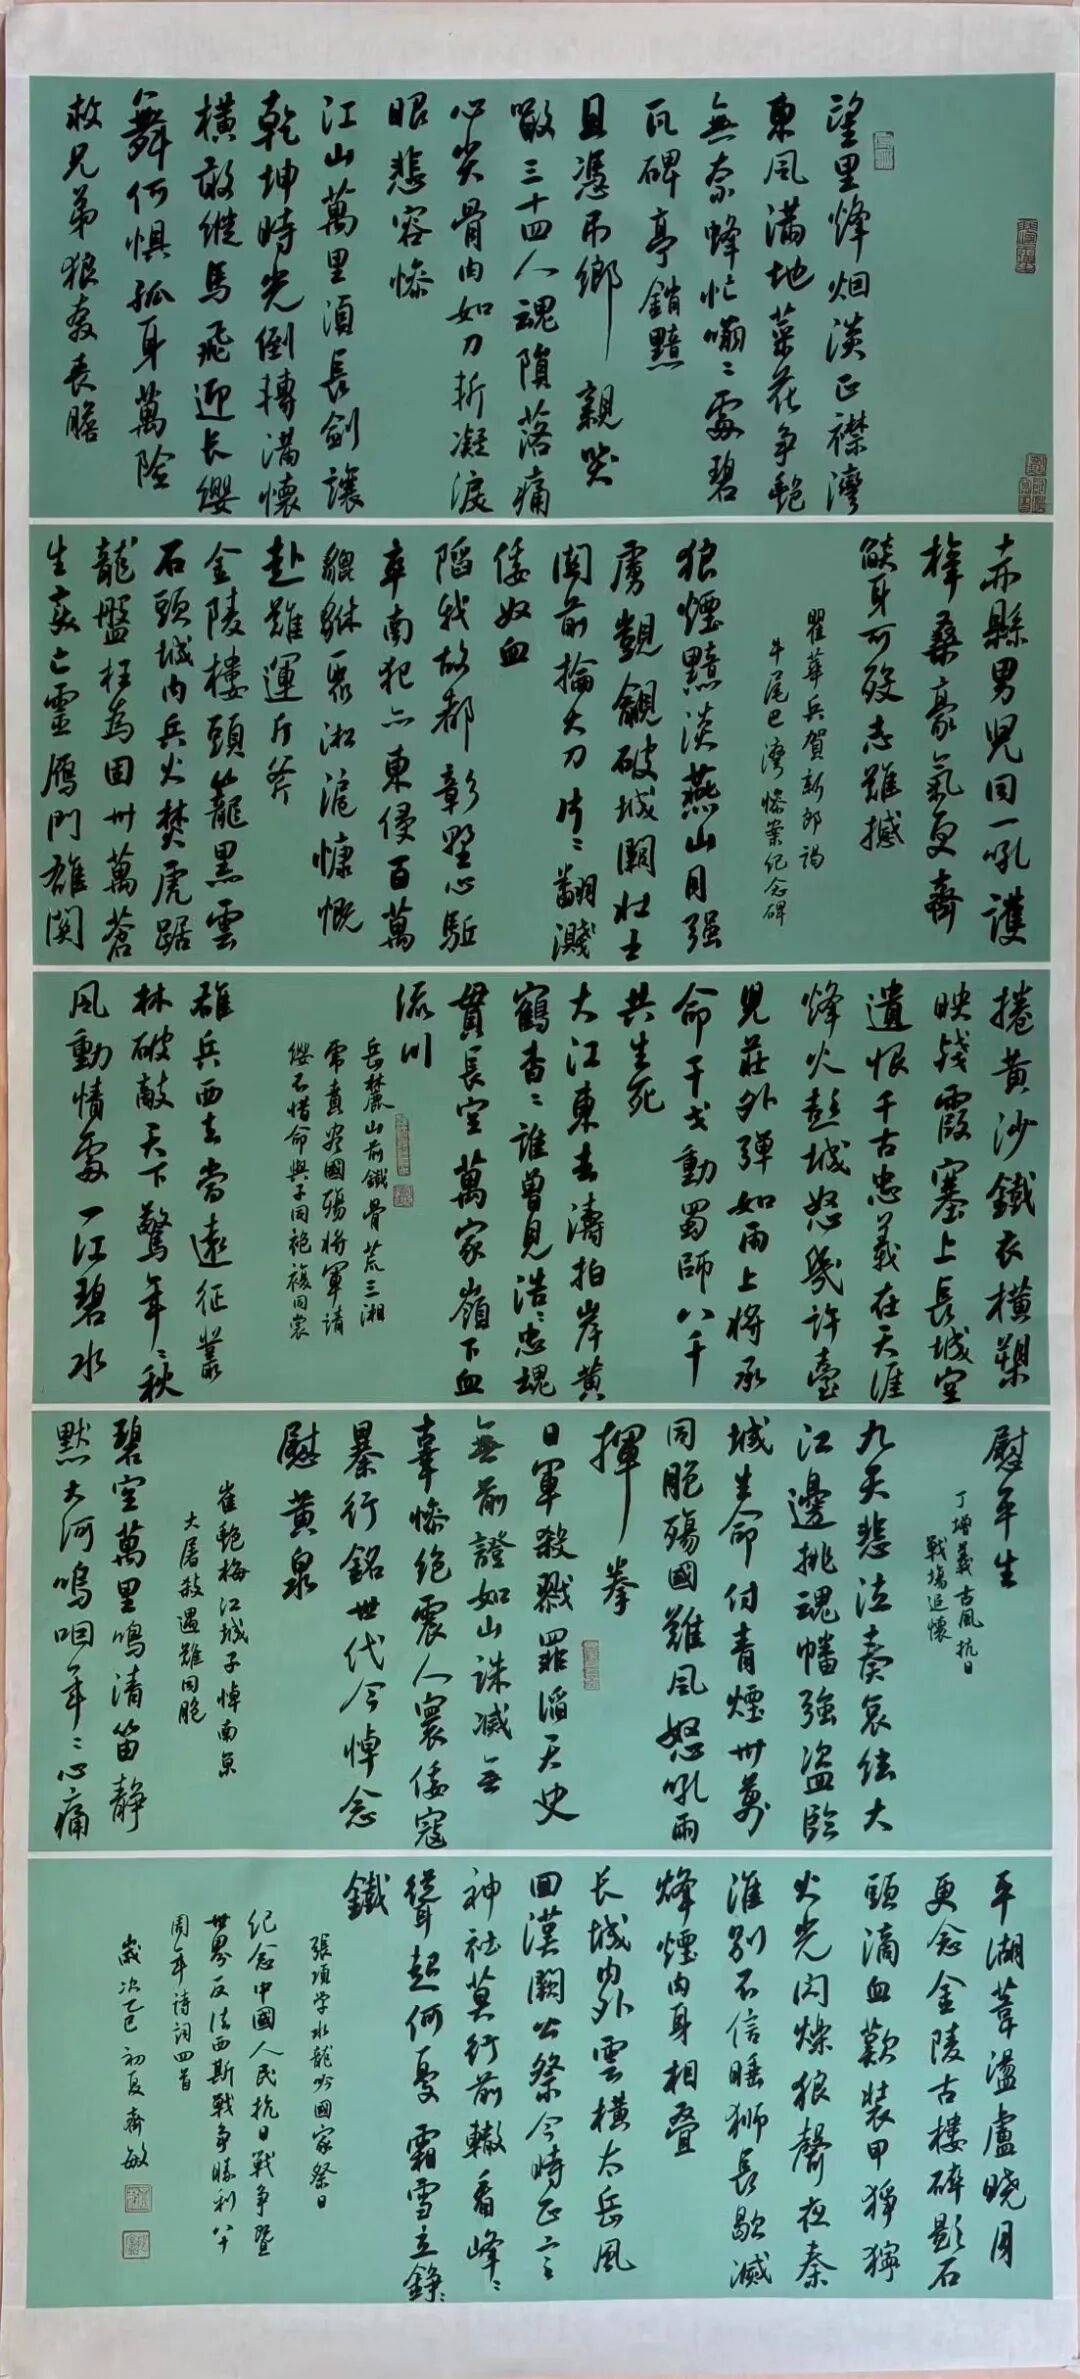 望里烽烟淡正襟灣
東風滿地菜花争艳
無奈蜂忙嗡〻處碧
瓦碑亭銷黯
且憑吊鄉親哭
噉三十四人魂隕落痛
心尖骨肉如刀折凝淚
眼悲容慘
江山萬里須長劍讓
乾坤時光倒轉滿懷
橫敢縱馬飛迎长纓
舞何惧孤身萬险
救兄弟狼奔喪膽
赤縣男兒同一吼護
梓桑豪氣更齊
餤身可殁志難撼
瞿華兵賀新郎謁
牛尾巴灣慘案纪念碑
狼煙黯淡燕山月强
虜覬覦破城闕壯士
関前掄大刀片〻翻濺
倭奴血
陷我故都彰野心駈
卒南犯亦東侵百萬
貔貅眾淞滬慷慨
赴難運斤斧
金陵樓頭籠黑雲
石頭城内兵火焚虎踞
龍盤枉為固卅萬蒼
生哀亡靈雁門雄関
捲黄沙鐵衣橫槊
映残霞塞上長城空
遺恨千古忠義在天涯
烽火彭城怒幾許臺
兒莊外彈如雨上將承
命干戈動蜀師八千
共生死
大江東去濤拍岸黄
鶴杳〻誰曾見浩〻忠魂
貫長空萬家嶺下血
流川
岳麓山前鐵骨荒三湘
常責盡國殤将軍請
缨不惜命與子同袍複同裳
雄兵西去當遠征叢
林破敵天下驚年〻秋
風動情處一江碧水
慰平生
丁增義古風抗日
戰場追懷
九天悲泣奏哀弦大
江邊挑魂幡强盗臨
城生命付青煙卅萬
同胞殤國難風怒吼雨
揮拳
日軍殺戮罪滔天史
無前證如山誅滅無
辜慘绝震人寰倭寇
暴行銘世代今悼念
慰黄泉
崔艳梅江城子悼南京
大屠殺遇難同胞
碧空萬里鳴清笛静
默大河嗚咽年〻心痛
平湖葦盪盧曉月
更念金陵古樓碎影石
頭滴血歎裝甲狰獰
火光闪爍狼聲夜秦
淮别不信睡狮長歇滅
烽煙内身相叠
长城内外雲橫太岳風
回漢闕公祭今時正言
神社莫行前轍看峰〻
聳起何憂霜雪立錚〻
鐵
張項学水龍吟國家祭日
纪念中國人民抗日戰争暨
世界反法西斯戰争勝利八十
周年诗词四首
歲次乙巳初夏齊敏